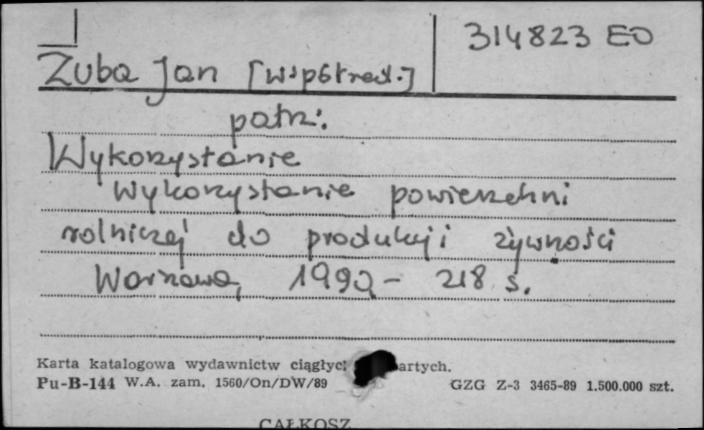 314823 EO
Zuba Jan [współred.]
patrz:
Wykorzystanie
Wykorzystanie powierzchni
rolniczej do produkcji żywności
Warszawa, 1990 - 218 s.
Karta katalogowa wydawnictw ciągłyc artych.
Pu-B-144 W.A. zam. 1560/On/DW/89 GZG Z-3 3465-89 1.500.000 szt.
CAŁKOSZ